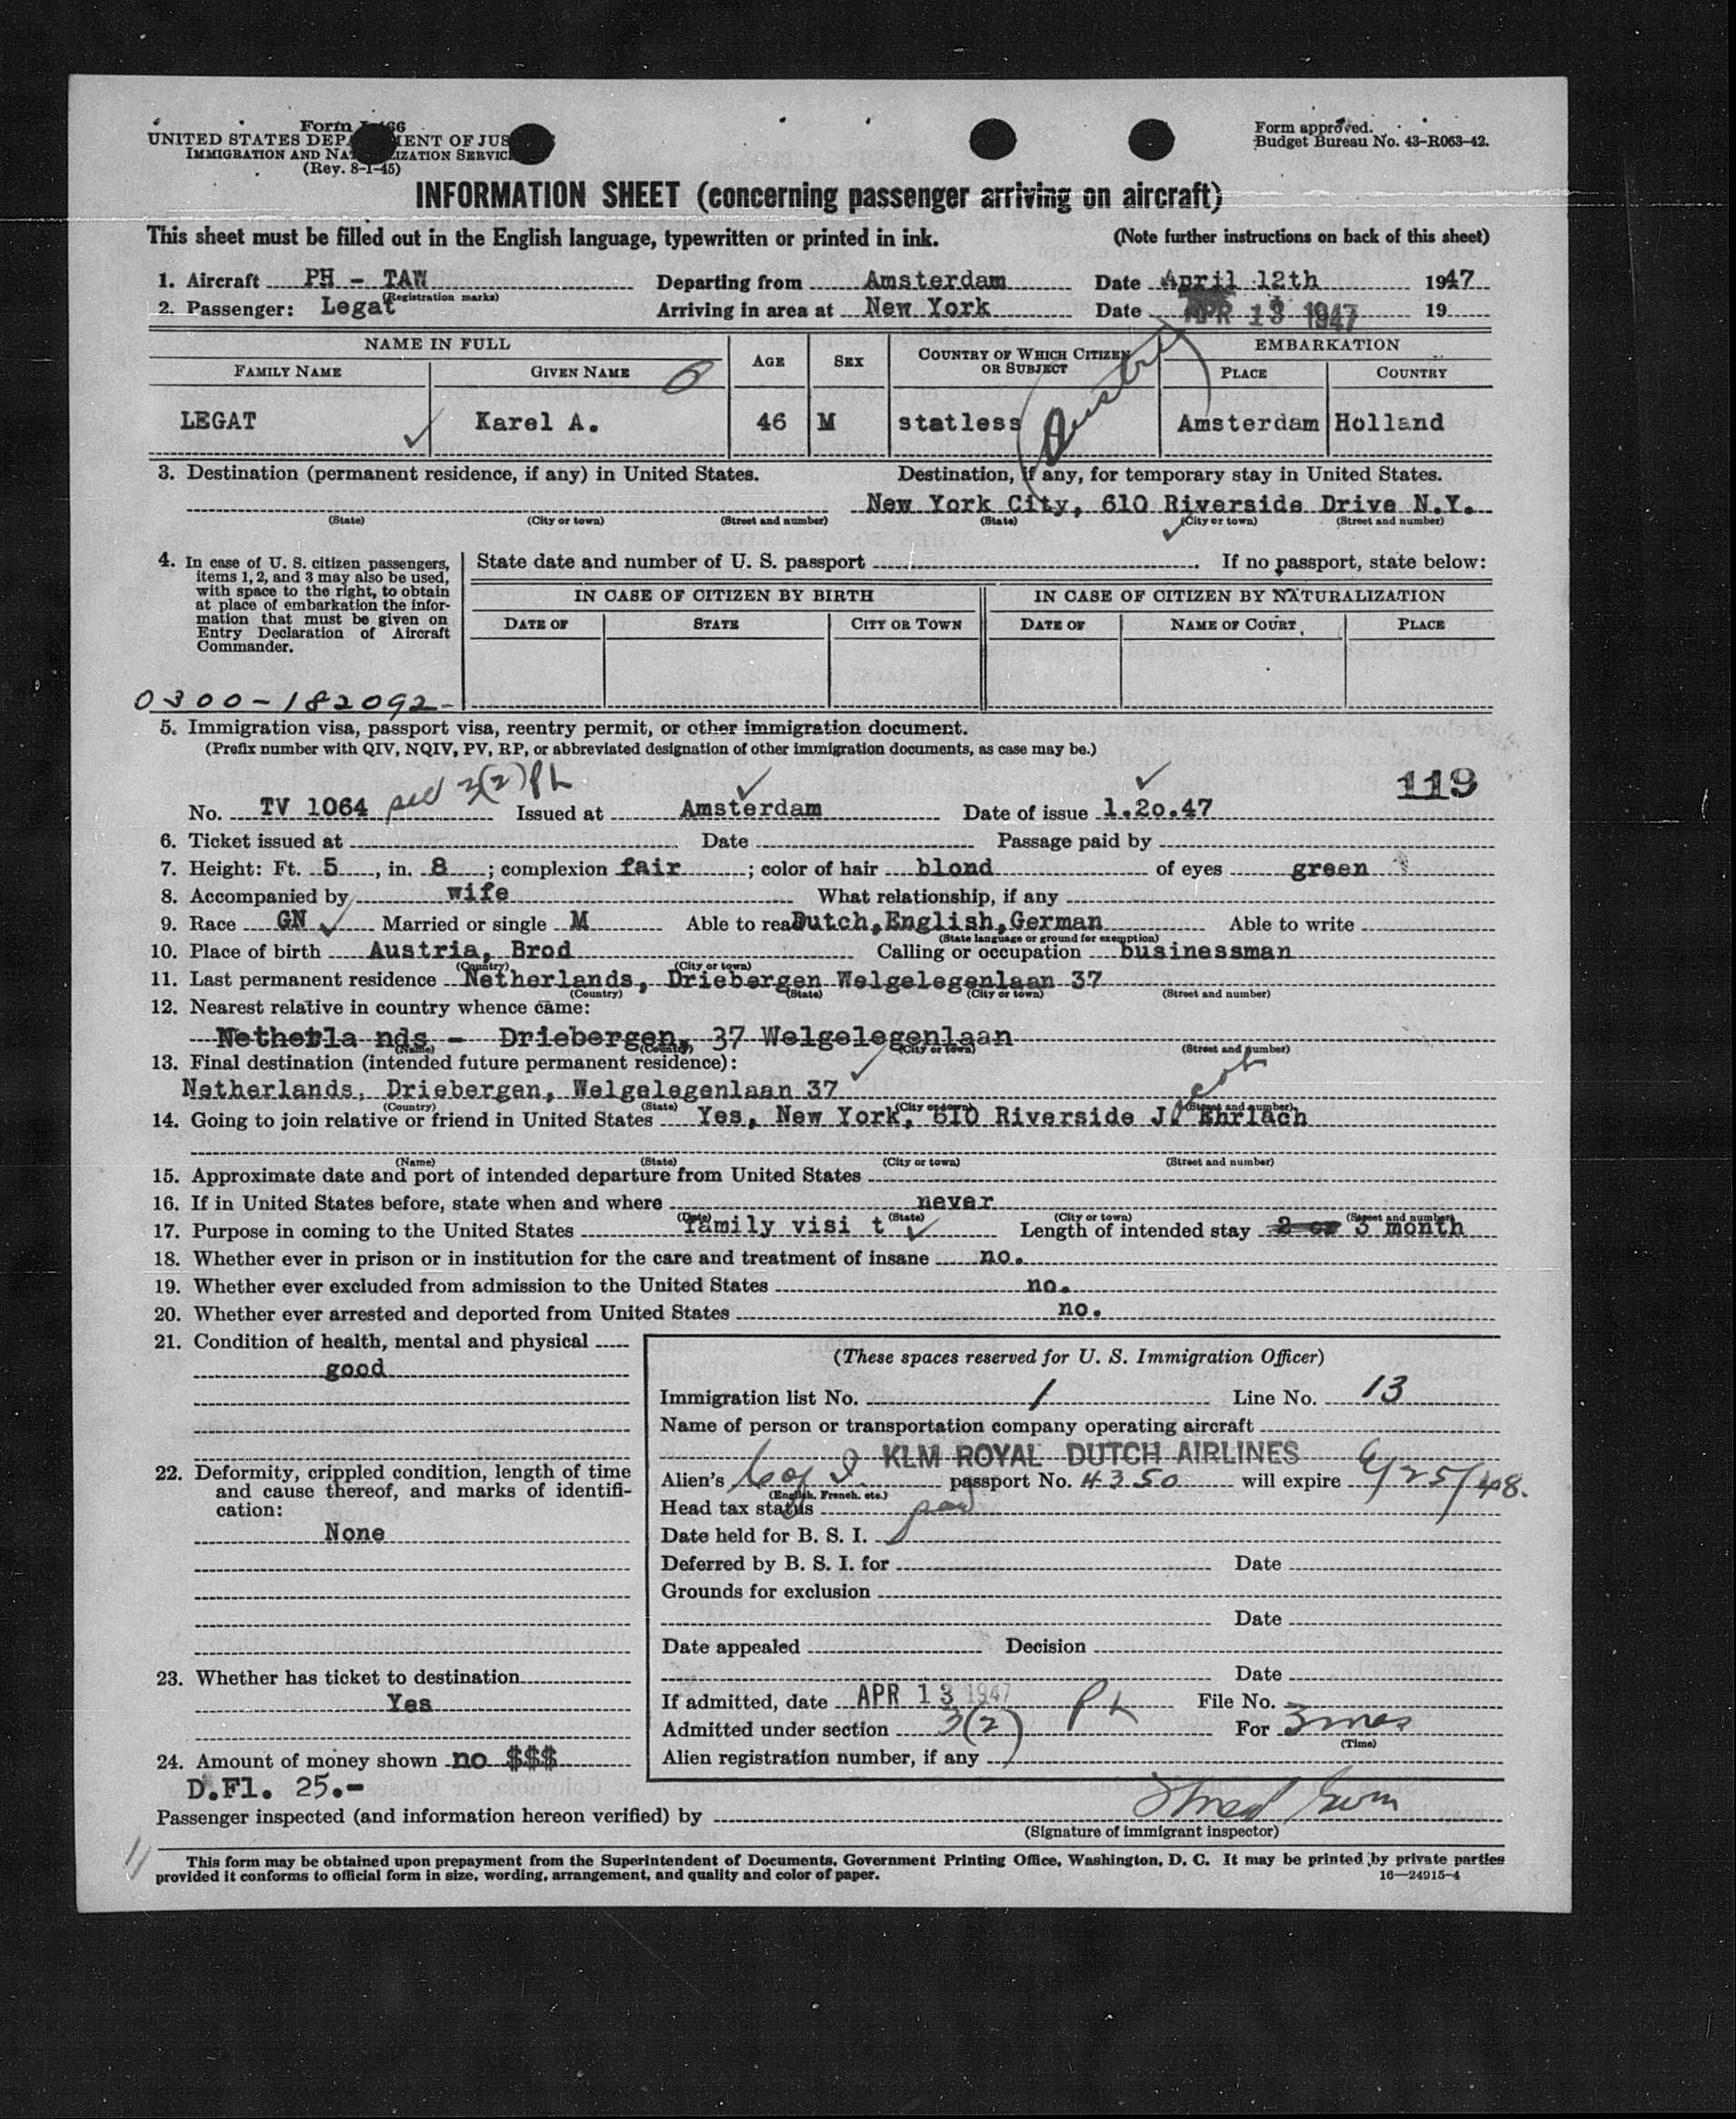 Form I-466
UNITED STATES DEPARTMENT OF JUSTICE
IMMIGRATION AND NATURALIZATION SERVICE
(Rev. 8-1-45)
Form approved.
Budget Bureau No. 43-R063-42.
INFORMATION SHEET (concerning passenger arriving on aircraft)
This sheet must be filled out in the English language, typewritten or printed in ink. (Note further instructions on back of this sheet)
1. Aircraft PH - TAW Departing from Amsterdam Date April 12th 1947
(Registration marks)
2. Passenger: Legat Arriving in area at New York Date APR 13 1947 19
NAME IN FULL AGE SEX COUNTRY OF WHICH CITIZEN OR SUBJECT EMBARKATION
FAMILY NAME GIVEN NAME PLACE COUNTRY
LEGAT Karel A. 46 M statless (Austria) Amsterdam Holland
3. Destination (permanent residence, if any) in United States. Destination, if any, for temporary stay in United States.
New York City, 610 Riverside Drive N.Y.
(State) (City or town) (Street and number) (State) (City or town) (Street and number)
4. In case of U. S. citizen passengers, items 1, 2, and 3 may also be used, with space to the right, to obtain at place of embarkation the information that must be given on Entry Declaration of Aircraft Commander.
State date and number of U. S. passport If no passport, state below:
IN CASE OF CITIZEN BY BIRTH IN CASE OF CITIZEN BY NATURALIZATION
DATE OF STATE CITY OR TOWN DATE OF NAME OF COURT PLACE
0300-182092-
5. Immigration visa, passport visa, reentry permit, or other immigration document.
(Prefix number with QIV, NQIV, PV, RP, or abbreviated designation of other immigration documents, as case may be.)
119
No. TV 1064 sec 3(2) Issued at Amsterdam Date of issue 1.2o.47
6. Ticket issued at Date Passage paid by
7. Height: Ft. 5, in. 8; complexion fair; color of hair blond of eyes green
8. Accompanied by wife What relationship, if any
9. Race GN Married or single M Able to read Dutch,English,German Able to write
(State language or ground for exemption)
10. Place of birth Austria, Brod Calling or occupation businessman
(Country) (City or town)
11. Last permanent residence Netherlands, Driebergen Welgelegenlaan 37
(Country) (State) (City or town) (Street and number)
12. Nearest relative in country whence came:
Netherla nds - Driebergen, 37 Welgelegenlaan
(Name) (Country) (City or town) (Street and number)
13. Final destination (intended future permanent residence):
Netherlands, Driebergen, Welgelegenlaan 37
(Country) (State) (City or town) (Street and number)
14. Going to join relative or friend in United States Yes, New York, 610 Riverside J. Ehrlach
(Name) (State) (City or town) (Street and number)
15. Approximate date and port of intended departure from United States
16. If in United States before, state when and where never
(Date) (State) (City or town) (Street and number)
17. Purpose in coming to the United States family visi t Length of intended stay 2 or 3 month
18. Whether ever in prison or in institution for the care and treatment of insane no.
19. Whether ever excluded from admission to the United States no.
20. Whether ever arrested and deported from United States no.
21. Condition of health, mental and physical
good
22. Deformity, crippled condition, length of time and cause thereof, and marks of identification:
None
23. Whether has ticket to destination
Yes
24. Amount of money shown no $$$
D.Fl. 25.-
(These spaces reserved for U. S. Immigration Officer)
Immigration list No. 1 Line No. 13
Name of person or transportation company operating aircraft
KLM ROYAL DUTCH AIRLINES
Alien's C of I passport No. 4350 will expire 6/25/48.
(English, French, etc.)
Head tax status paid
Date held for B. S. I.
Deferred by B. S. I. for Date
Grounds for exclusion
Date
Date appealed Decision
Date
If admitted, date APR 13 1947 File No.
Admitted under section 3(2) For 3 mos
(Time)
Alien registration number, if any
Passenger inspected (and information hereon verified) by
(Signature of immigrant inspector)
This form may be obtained upon prepayment from the Superintendent of Documents, Government Printing Office, Washington, D. C. It may be printed by private parties
provided it conforms to official form in size, wording, arrangement, and quality and color of paper. 16—24915-4